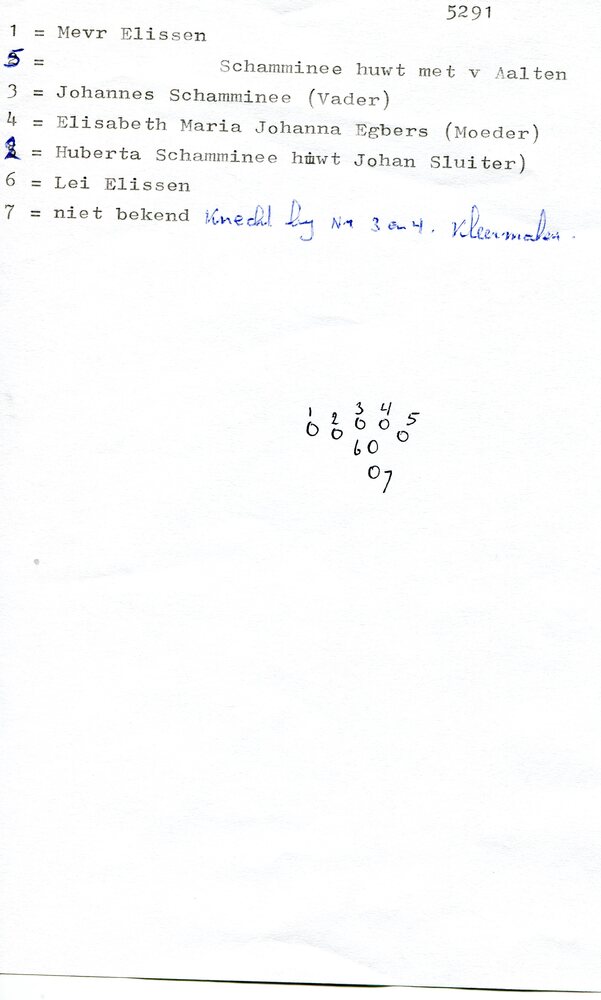 5291
1 = Mevr Elissen
5 = Schamminee huwt met v Aalten
3 = Johannes Schamminee (Vader)
4 = Elisabeth Maria Johanna Egbers (Moeder)
2 = Huberta Schamminee huwt Johan Sluiter)
6 = Lei Elissen
7 = niet bekend Knecht by Nr 3 en 4. Kleermaker.
1 2 3 4 5
0 0 0 0 0
6 0
0 7